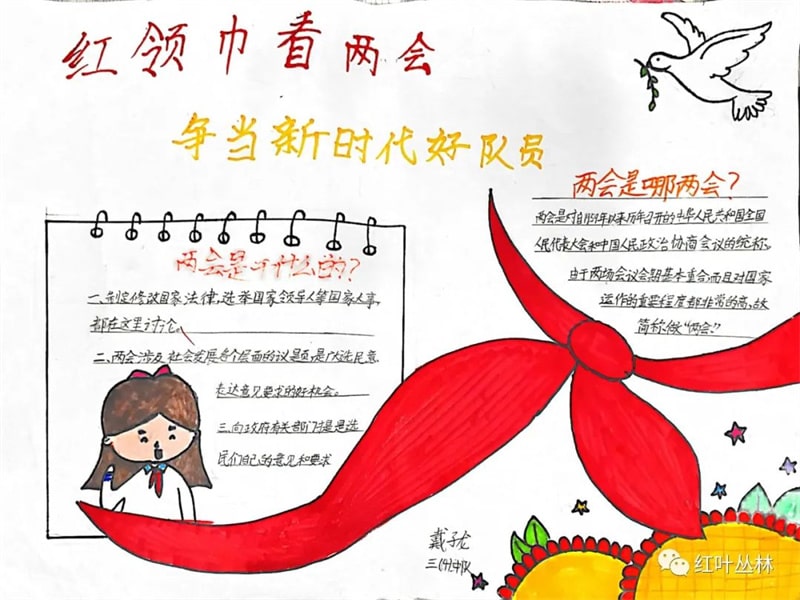 红领巾看两会
争当新时代好队员
两会是哪两会?
两会是对自1959年以来历年召开的中华人民共和国全国
人民代表大会和中国人民政治协商会议的统称,
由于两场会议会期基本重合而且对国家
运作的重要程度都非常的高,故
简称做“两会”
两会是干什么的?
一、制定修改国家法律,选举国家领导人等国家人事,
都在这里讨论。
二、两会涉及社会发展各个层面的议题,是广大选民意
表达意见要求的好机会。
三、向政府有关部门提选
民们自己的意见和要求
戴子龙
红叶丛林